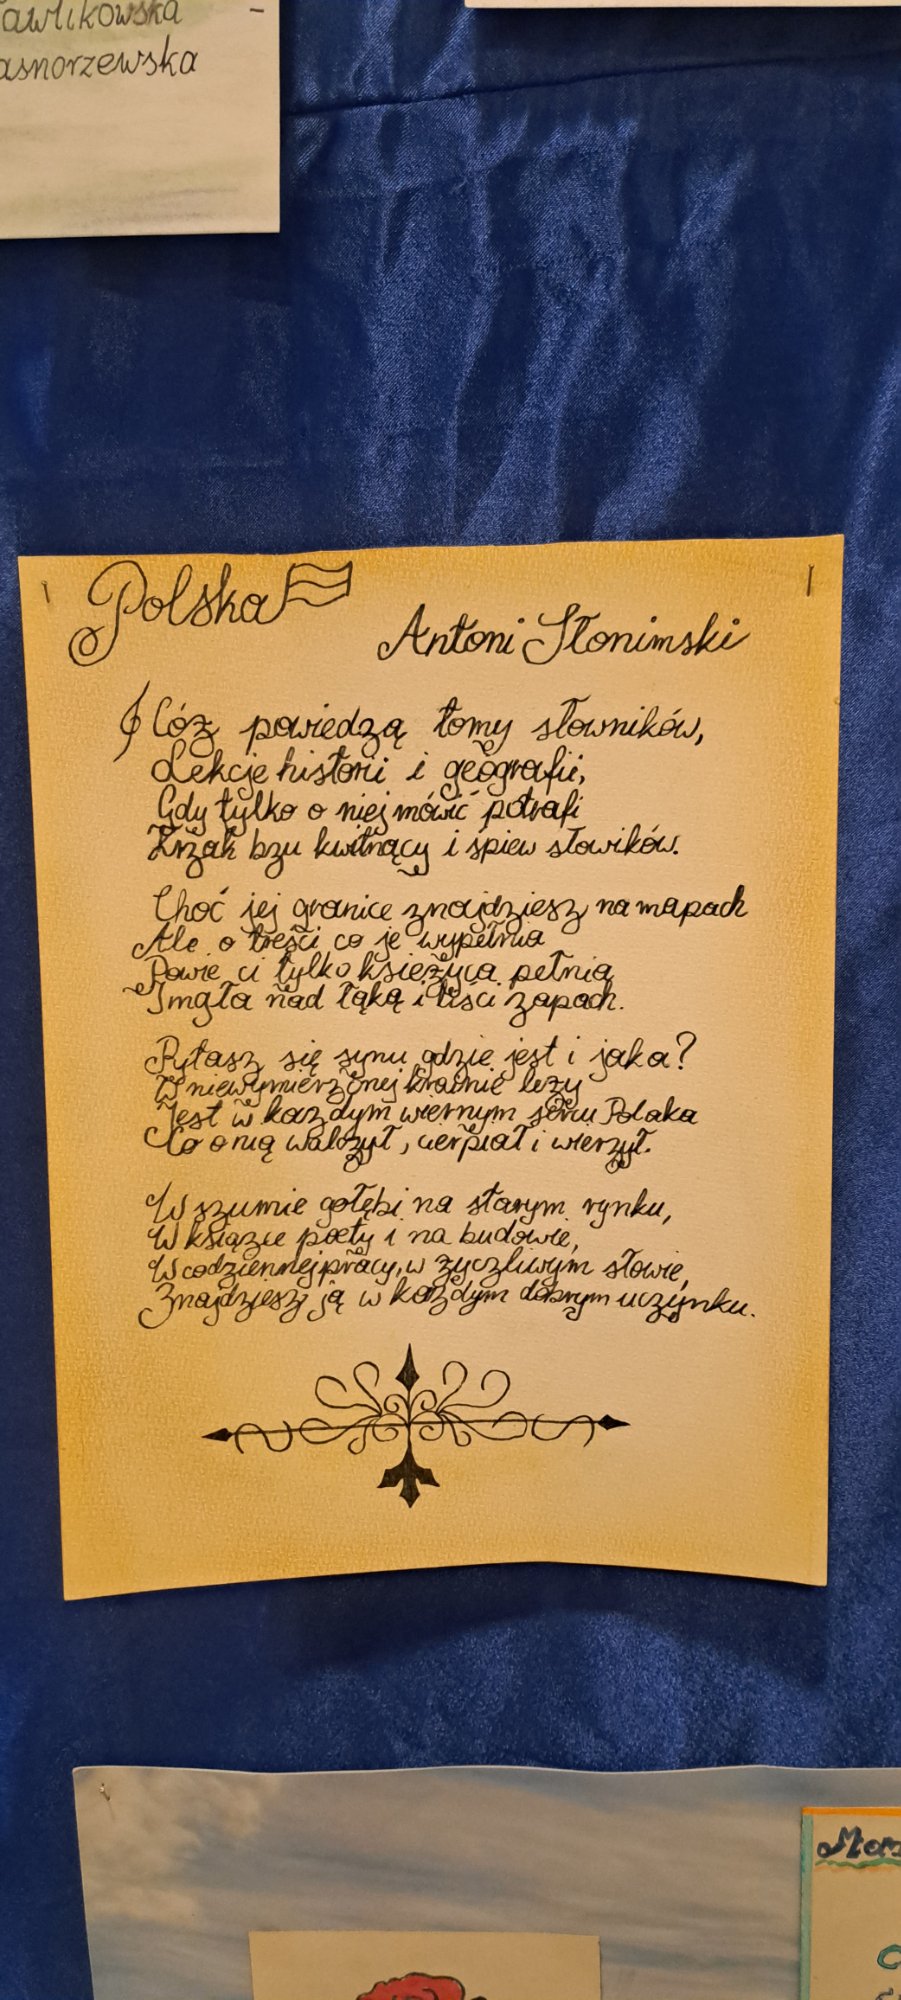 awlikowska -
asnorzewska
Polska
Antoni Słonimski
I Cóż powiedzą tomy słowników,
Lekcje historii i geografii,
Gdy tylko o niej mówić potrafi
Krzak bzu kwitnący i śpiew słowików.
Choć jej granice znajdziesz na mapach
Ale o treści co je wypełnia
Powie ci tylko księżyca pełnia
I mgła nad łąką i liści zapach.
Pytasz się synu gdzie jest i jaka?
W niewymierzonej krainie leży
Jest w każdym wiernym sercu Polaka
Co o nią walczył, cierpiał i wierzył.
W szumie gołębi na starym rynku,
W książce poety i na budowie,
W codziennej pracy, w życzliwym słowie,
Znajdziesz ją w każdym dobrym uczynku.